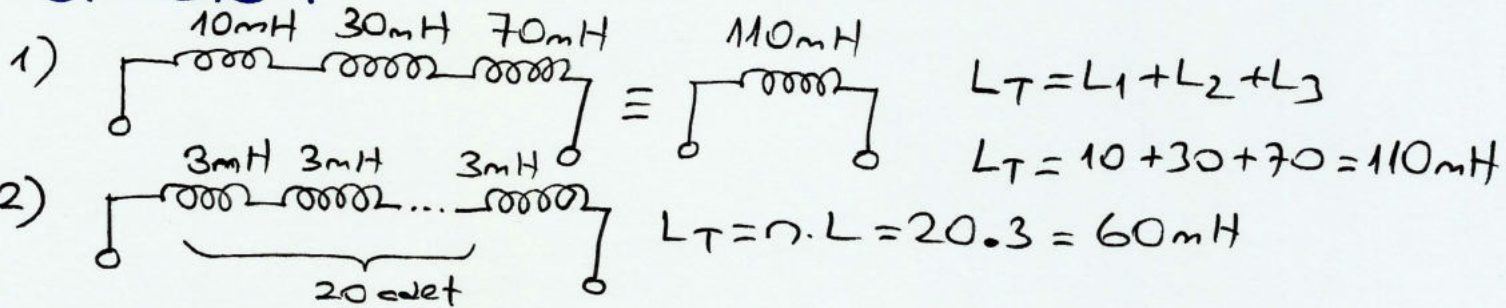 1) 10mH 30mH 70mH ≡ 110mH L_T = L_1 + L_2 + L_3
L_T = 10 + 30 + 70 = 110mH
2) 3mH 3mH ... 3mH L_T = n.L = 20.3 = 60mH
20 adet